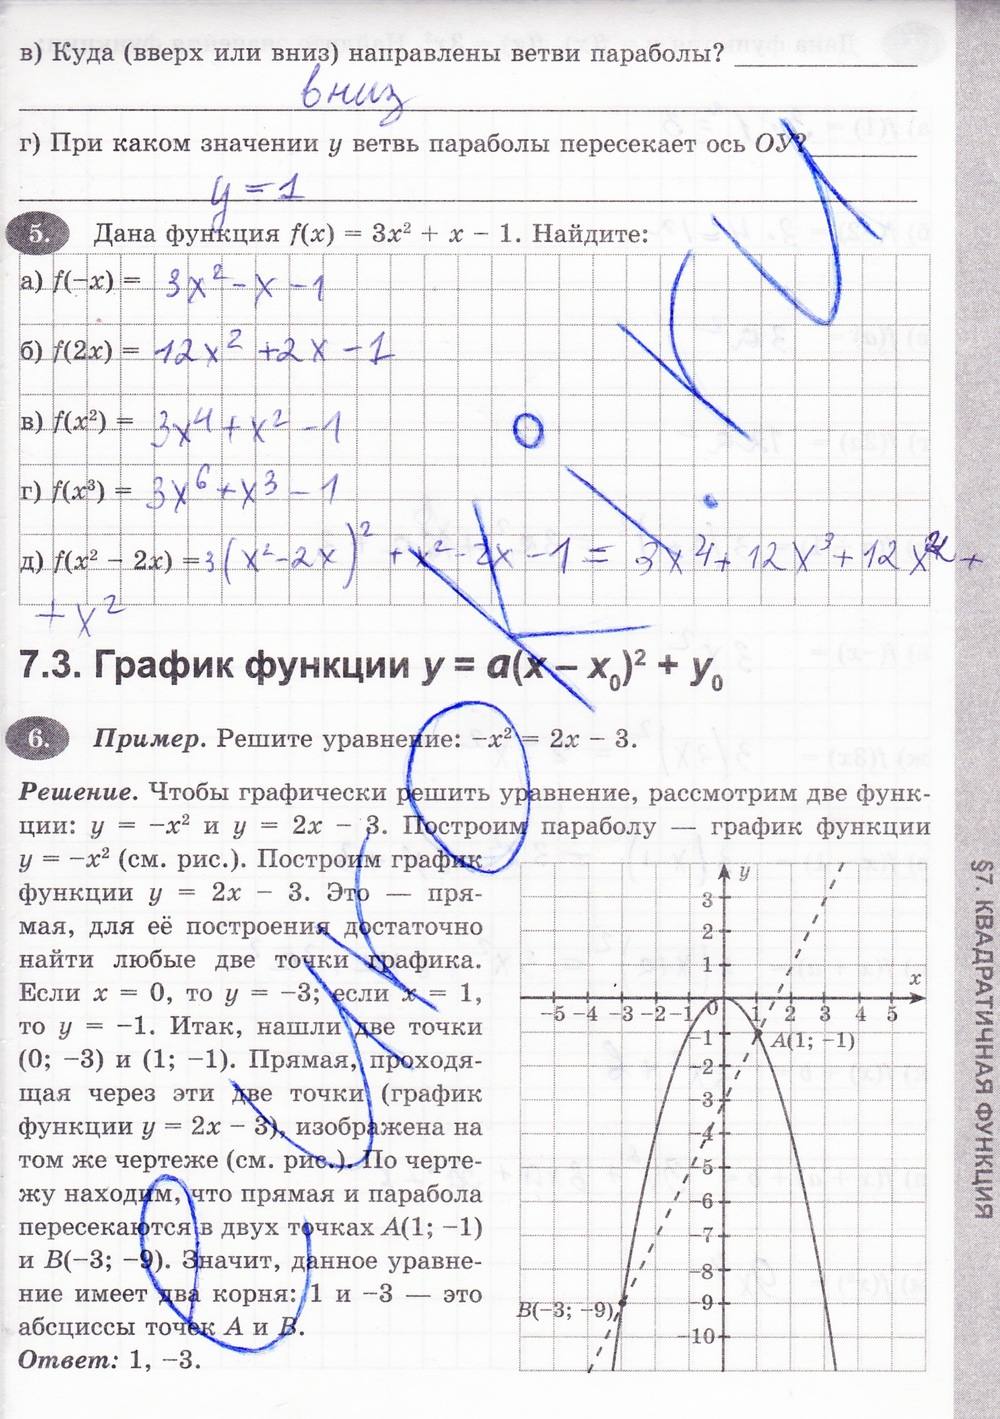 в) Куда (вверх или вниз) направлены ветви параболы?
вниз
г) При каком значении y ветвь параболы пересекает ось OY?
y = 1
5. Дана функция f(x) = 3x² + x − 1. Найдите:
а) f(−x) = 3x² − x − 1
б) f(2x) = 12x² + 2x − 1
в) f(x²) = 3x⁴ + x² − 1
г) f(x³) = 3x⁶ + x³ − 1
д) f(x² − 2x) = 3(x² − 2x)² + x² − 2x − 1 = 3x⁴ + 12x³ + 12x² +
+ x²
7.3. График функции y = a(x − x₀)² + y₀
6. Пример. Решите уравнение: −x² = 2x − 3.
Решение. Чтобы графически решить уравнение, рассмотрим две функ-
ции: y = −x² и y = 2x − 3. Построим параболу — график функции
y = −x² (см. рис.). Построим график
функции y = 2x − 3. Это — пря-
мая, для её построения достаточно
найти любые две точки графика.
Если x = 0, то y = −3; если x = 1,
то y = −1. Итак, нашли две точки
(0; −3) и (1; −1). Прямая, проходя-
щая через эти две точки (график
функции y = 2x − 3), изображена на
том же чертеже (см. рис.). По черте-
жу находим, что прямая и парабола
пересекаются в двух точках A(1; −1)
и B(−3; −9). Значит, данное уравне-
ние имеет два корня: 1 и −3 — это
абсциссы точек A и B.
Ответ: 1, −3.
y
3
2
1
x
−5 −4 −3 −2 −1 0 1 2 3 4 5
−1
A(1; −1)
−2
−3
−4
−5
−6
−7
−8
−9
B(−3; −9)
−10
§7. КВАДРАТИЧНАЯ ФУНКЦИЯ